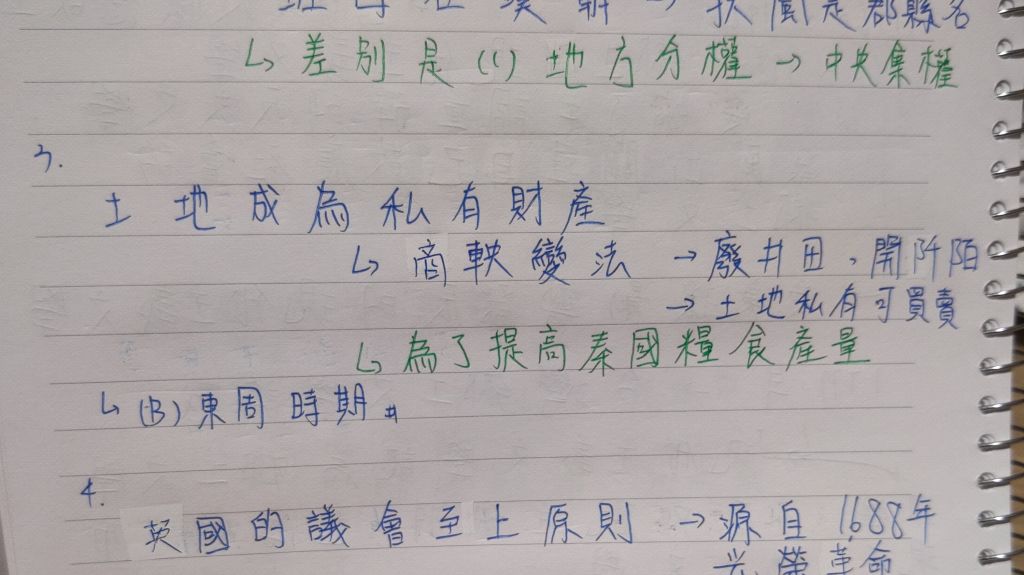 班固在漢朝→扶風是郡縣名
↳差別是(1)地方分權→中央集權
3.
土地成為私有財產
↳商鞅變法→廢井田、開阡陌
→土地私有可買賣
↳為了提高秦國糧食產量
↳(B)東周時期#
4.
英國的議會至上原則→源自1688年
光榮革命